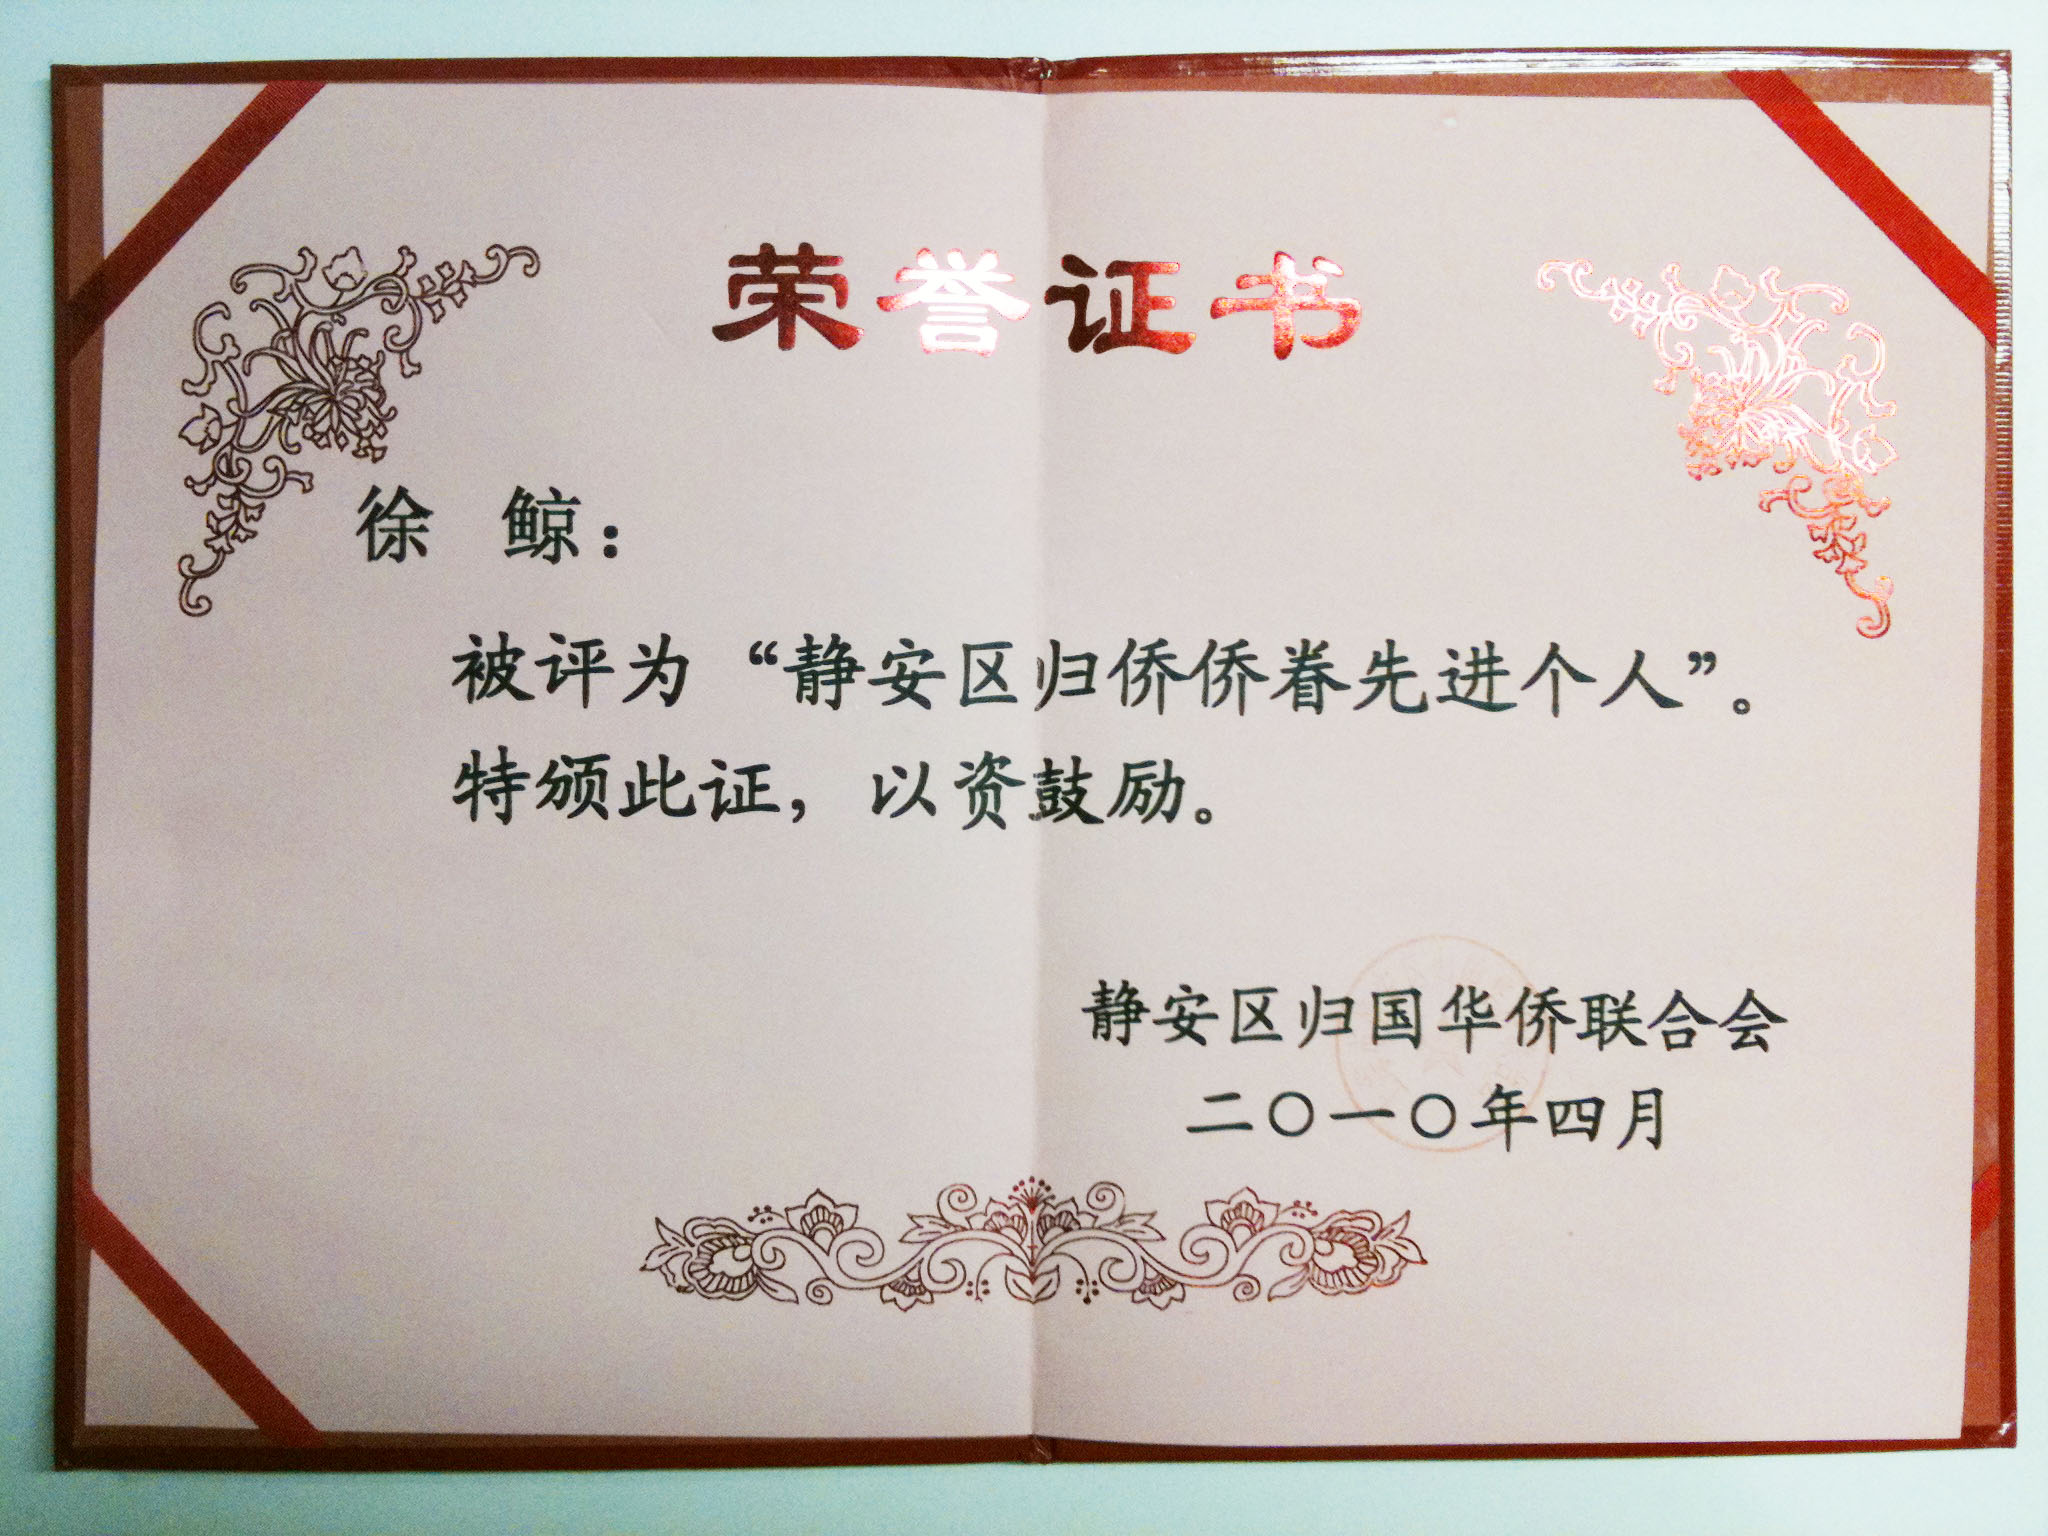 荣誉证书
徐 鲸：
被评为“静安区归侨侨眷先进个人”。
特颁此证，以资鼓励。
静安区归国华侨联合会
二〇一〇年四月